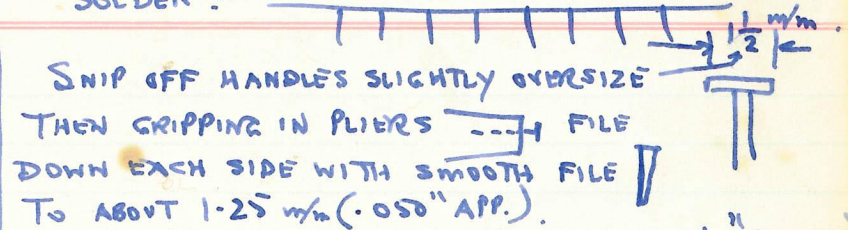 SOLDER.
1 1/2 m/m.
SNIP OFF HANDLES SLIGHTLY OVERSIZE
THEN GRIPPING IN PLIERS FILE
DOWN EACH SIDE WITH SMOOTH FILE
TO ABOUT 1.25 m/m (.050" APP.).
"